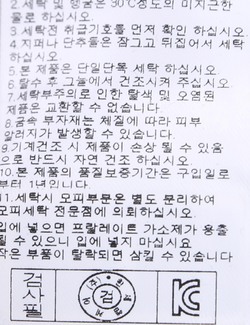 2. 세탁 및 헹굼은 30℃정도의 미지근한
물로 하십시오.
3.세탁전 취급기호를 먼저 확인 하십시오
4.지퍼나 단추들은 잠그고 뒤집어서 세탁
하십시오.
5.본 제품은 단일단독 세탁 하십시오.
6.탈수 후 그늘에서 건조시켜 주십시오
7.세탁부주의로 인한 탈색 및 오염된
제품은 교환할 수 없습니다.
8.금속 부자재는 체질에 따라 피부
알러지가 발생할 수 있습니다.
9.기계건조 시 제품이 손상 될 수 있음
으로 반드시 자연 건조 하십시오.
10.본 제품의 품질보증기간은 구입일로
부터 1년입니다.
11.세탁시 모피부문은 별도 분리하여
모피세탁 전문점에 의뢰하십시오.
입에 넣으면 프탈레이트 가소제가 용출
될 수 있으니 입에 넣지 마십시요
작은 부품이 탈락되면 삼킬 수 있습니다
검사필
(주)
검
KC